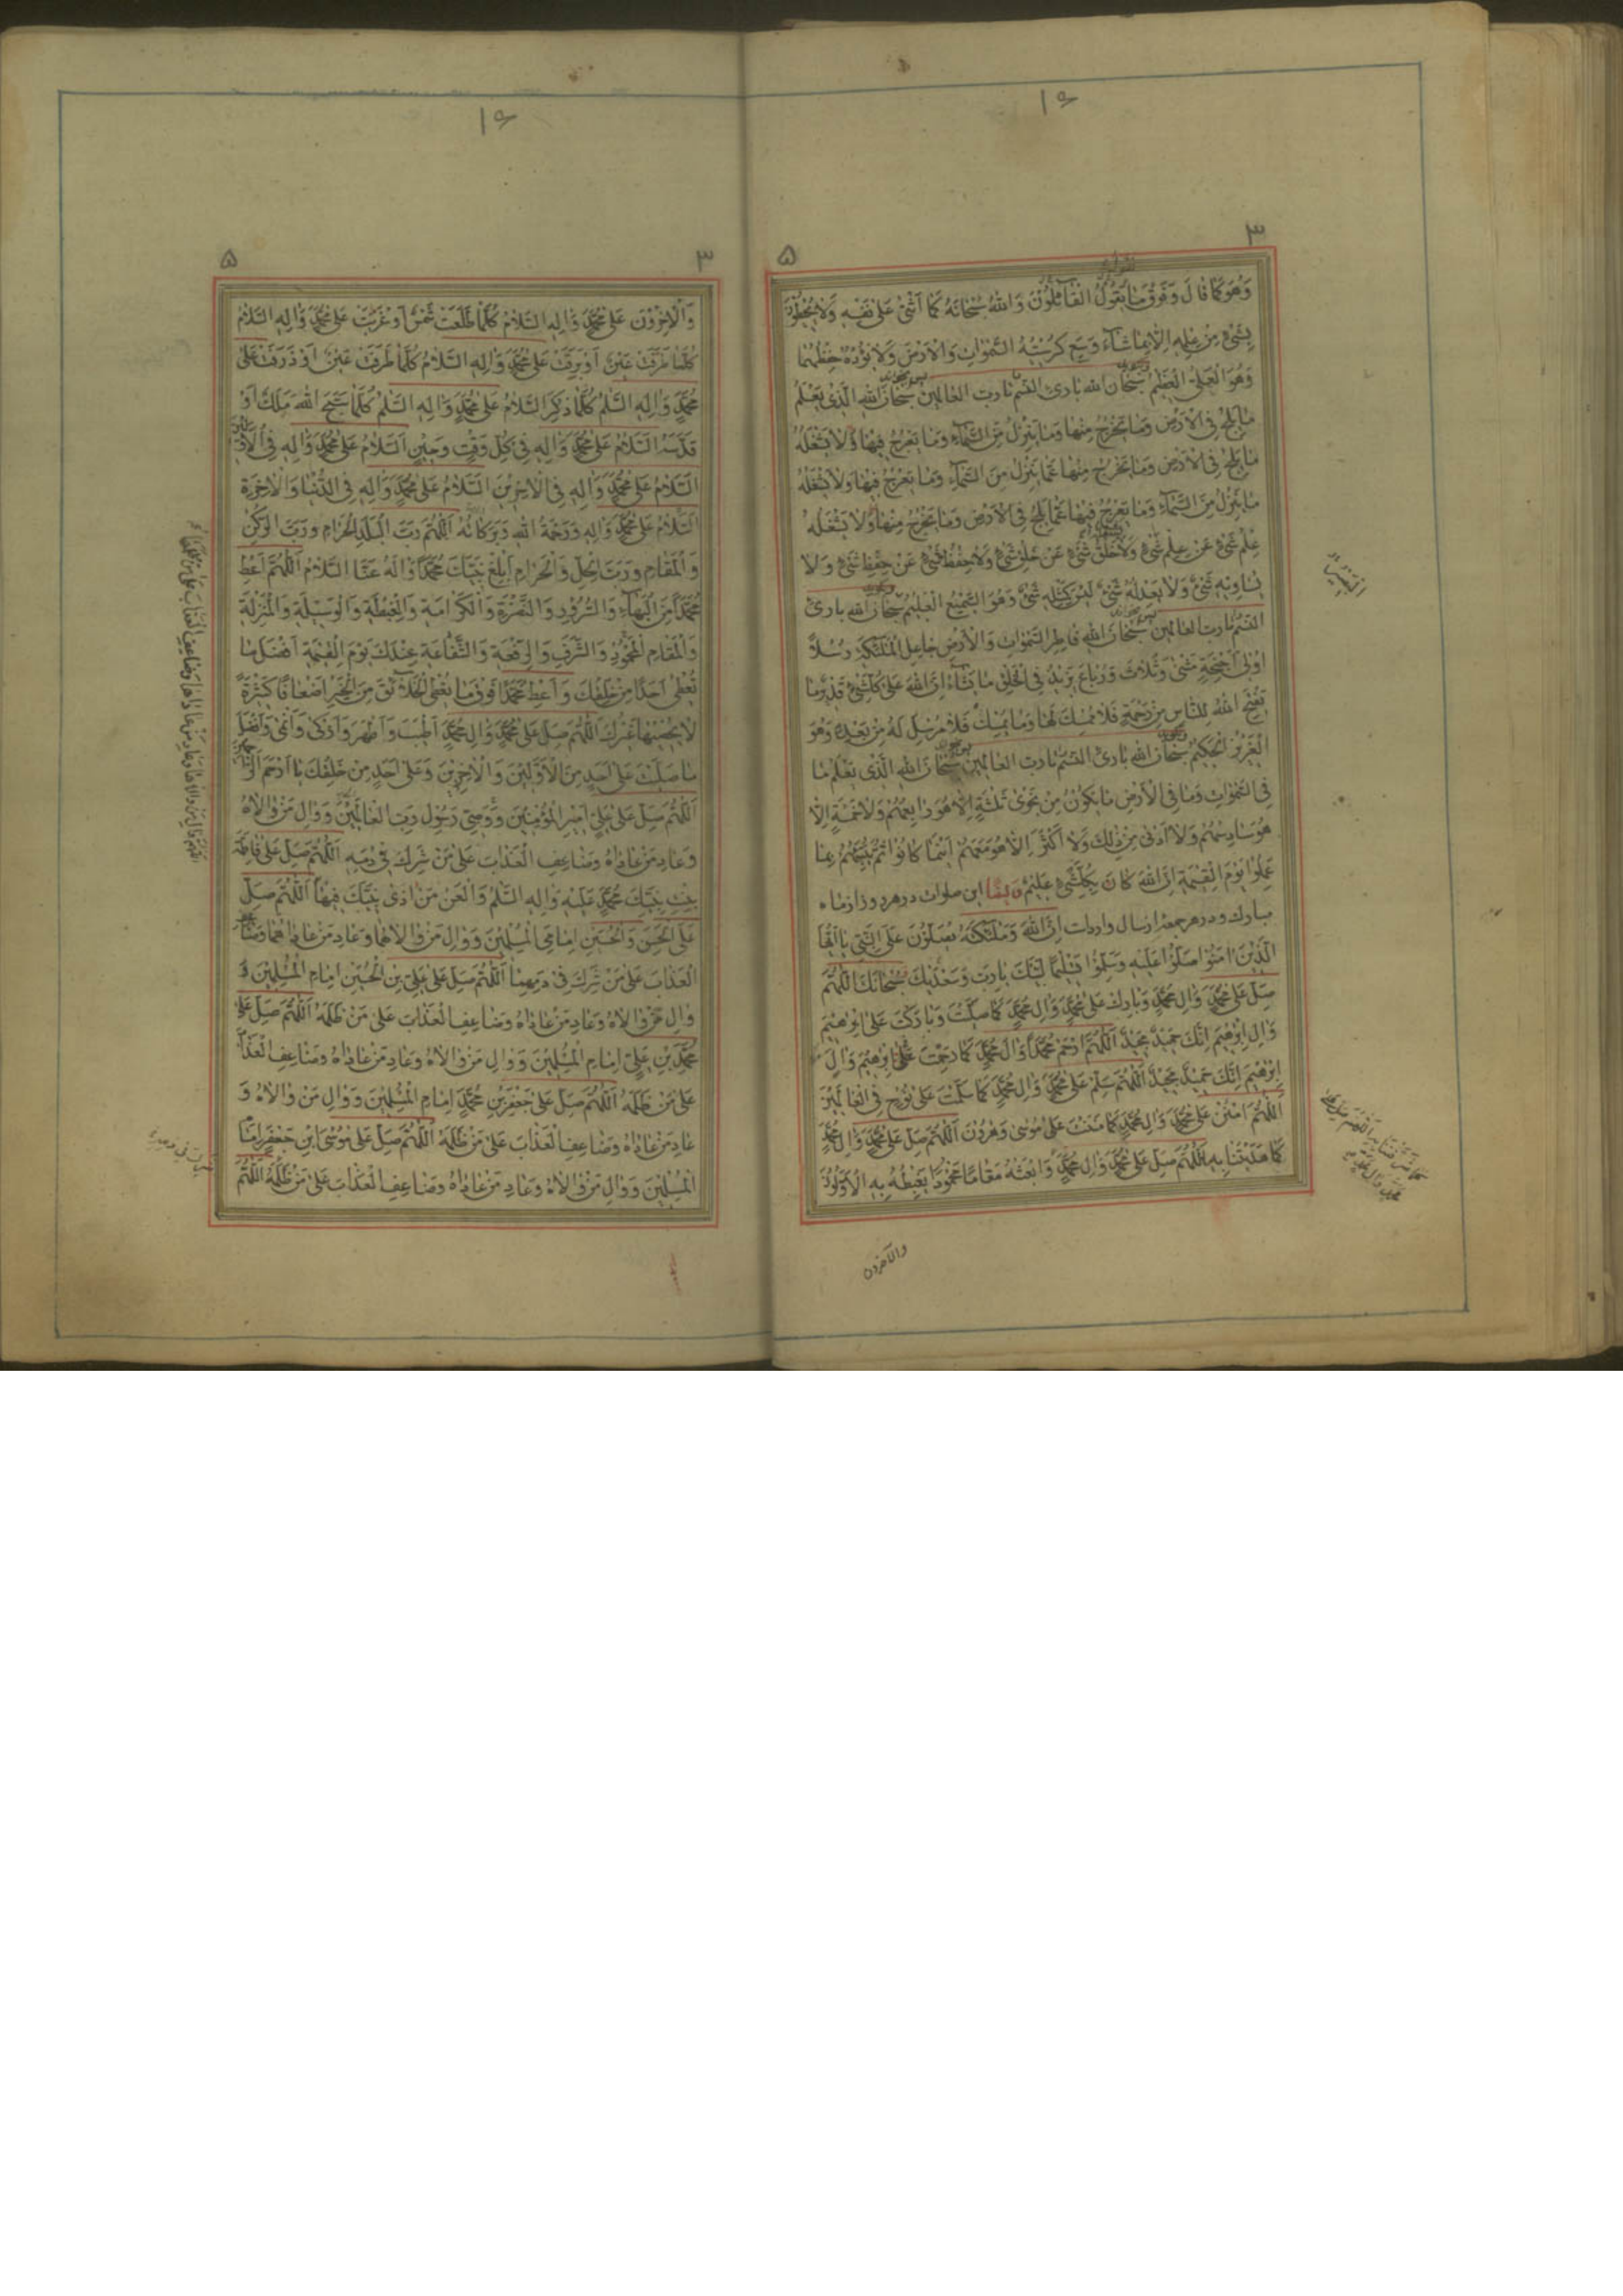 ۱۶
۳
۵
وَهُوَ كَمٰا قٰالَ وَفَوْقَ مٰا يَقُولُ الْقٰآئِلُوْنَ وَاللهُ سُبْحٰانَهُ كَمٰا اَثْنىٰ عَلىٰ نَفْسِهِ وَلاٰ يُحيطُوْنَ
بِشَىْءٍ مِنْ عِلْمِهِ اِلاّٰ بِمٰا شٰآءَ وَسِعَ كُرْسِيُّهُ السَّمٰوٰاتِ وَالْاَرْضَ وَلاٰ يَؤُدُهُ حِفْظُهُمٰا
وَهُوَ الْعَلِىُّ الْعَظيْمُ سُبْحٰانَ اللهِ بٰارِئِ النَّسَمِ تا رب العالمين سُبْحٰانَ اللهِ الَّذى يَعْلَمُ
مٰا يَلِجُ فِى الْاَرْضِ وَمٰا يَخْرُجُ مِنْهٰا وَمٰا يَنْزِلُ مِنَ السَّمٰآءِ وَمٰا يَعْرُجُ فيهٰا وَلاٰ يَشْغَلُهُ
مٰا يَلِجُ فِى الْاَرْضِ وَمٰا يَخْرُجُ مِنْهٰا عَمّٰا يَنْزِلُ مِنَ السَّمٰآءِ وَمٰا يَعْرُجُ فيهٰا وَلاٰ يَشْغَلُهُ
مٰا يَنْزِلُ مِنَ السَّمٰآءِ وَمٰا يَعْرُجُ فيهٰا عَمّٰا يَلِجُ فِى الْاَرْضِ وَمٰا يَخْرُجُ مِنْهٰا وَلاٰ يَشْغَلُهُ
عِلْمُ شَىْءٍ عَنْ عِلْمِ شَىْءٍ وَلاٰ خَلْقُ شَىْءٍ عَنْ خَلْقِ شَىْءٍ وَلاٰ حِفْظُ شَىْءٍ عَنْ حِفْظِ شَىْءٍ وَلاٰ
يُسٰاوِيهِ شَىْءٌ وَلاٰ يَعْدِلُهُ شَىْءٌ لَيْسَ كَمِثْلِهِ شَىْءٌ وَهُوَ السَّميْعُ الْعَليْمُ سُبْحٰانَ اللهِ بٰارِئِ
النَّسَمِ تا رب العالمين سُبْحٰانَ اللهِ فٰاطِرِ السَّمٰوٰاتِ وَالْاَرْضِ جٰاعِلِ الْمَلٰئِكَةِ رُسُلاً
اُوْلى اَجْنِحَةٍ مَثْنىٰ وَثُلاٰثَ وَرُبٰاعَ يَزيْدُ فِى الْخَلْقِ مٰا يَشٰآءُ اِنَّ اللهَ عَلىٰ كُلِّ شَىْءٍ قَديْرٌ مٰا
يَفْتَحِ اللهُ لِلنّٰاسِ مِنْ رَحْمَةٍ فَلاٰ مُمْسِكَ لَهٰا وَمٰا يُمْسِكْ فَلاٰ مُرْسِلَ لَهُ مِنْ بَعْدِهِ وَهُوَ
الْعَزيْزُ الْحَكيْمُ سُبْحٰانَ اللهِ بٰارِئِ النَّسَمِ تا رب العالمين سُبْحٰانَ اللهِ الَّذى يَعْلَمُ مٰا
فِى السَّمٰوٰاتِ وَمٰا فِى الْاَرْضِ مٰا يَكُوْنُ مِنْ نَجْوىٰ ثَلٰثَةٍ اِلاّٰ هُوَ رٰابِعُهُمْ وَلاٰ خَمْسَةٍ اِلاّٰ
هُوَ سٰادِسُهُمْ وَلاٰ اَدْنىٰ مِنْ ذٰلِكَ وَلاٰ اَكْثَرَ اِلاّٰ هُوَ مَعَهُمْ اَيْنَمٰا كٰانُوْا ثُمَّ يُنَبِّئُهُمْ بِمٰا
عَمِلُوْا يَوْمَ الْقِيٰمَةِ اِنَّ اللهَ كٰانَ بِكُلِّ شَىْءٍ عَليْمٌ وَ ايضًا اين صلوات در هر روز از ماه
مبارك و در هر جمعه از سال وارد است اِنَّ اللهَ وَمَلٰئِكَتَهُ يُصَلُّوْنَ عَلَى النَّبِىِّ يٰا اَيُّهَا
الَّذيْنَ اٰمَنُوْا صَلُّوْا عَلَيْهِ وَسَلِّمُوْا تَسْليْمًا لَبَّيْكَ يٰا رَبِّ وَسَعْدَيْكَ سُبْحٰانَكَ اللّٰهُمَّ
صَلِّ عَلىٰ مُحَمَّدٍ وَاٰلِ مُحَمَّدٍ وَبٰارِكْ عَلىٰ مُحَمَّدٍ وَاٰلِ مُحَمَّدٍ كَمٰا صَلَّيْتَ وَبٰارَكْتَ عَلىٰ اِبْرٰهيْمَ
وَاٰلِ اِبْرٰهيْمَ اِنَّكَ حَميْدٌ مَجيْدٌ اَللّٰهُمَّ ارْحَمْ مُحَمَّدًا وَاٰلَ مُحَمَّدٍ كَمٰا رَحِمْتَ عَلىٰ اِبْرٰهيْمَ وَاٰلِ
اِبْرٰهيْمَ اِنَّكَ حَميْدٌ مَجيْدٌ اَللّٰهُمَّ سَلِّمْ عَلىٰ مُحَمَّدٍ وَاٰلِ مُحَمَّدٍ كَمٰا سَلَّمْتَ عَلىٰ نُوْحٍ فِى الْعٰالَميْنَ
اَللّٰهُمَّ امْنُنْ عَلىٰ مُحَمَّدٍ وَاٰلِ مُحَمَّدٍ كَمٰا مَنَنْتَ عَلىٰ مُوْسىٰ وَهٰرُوْنَ اَللّٰهُمَّ صَلِّ عَلىٰ مُحَمَّدٍ وَاٰلِ مُحَمَّدٍ
كَمٰا هَدَيْتَنٰا بِهِ اَللّٰهُمَّ صَلِّ عَلىٰ مُحَمَّدٍ وَاٰلِ مُحَمَّدٍ وَابْعَثْهُ مَقٰامًا مَحْمُوْدًا يَغْبِطُهُ بِهِ الْاَوَّلُوْنَ
والآخرون
۱۶
۳
۵
وَالْاٰخِرُوْنَ عَلىٰ مُحَمَّدٍ وَاٰلِهِ السَّلاٰمُ كُلَّمٰا طَلَعَتْ شَمْسٌ اَوْ غَرَبَتْ عَلىٰ مُحَمَّدٍ وَاٰلِهِ السَّلاٰمُ
كُلَّمٰا طَرَفَتْ عَيْنٌ اَوْ بَرِقَتْ عَلىٰ مُحَمَّدٍ وَاٰلِهِ السَّلاٰمُ كُلَّمٰا طَرَفَتْ عَيْنٌ اَوْ ذَرَفَتْ عَلىٰ
مُحَمَّدٍ وَاٰلِهِ السَّلٰمُ كُلَّمٰا ذُكِرَ السَّلاٰمُ عَلىٰ مُحَمَّدٍ وَاٰلِهِ السَّلٰمُ كُلَّمٰا سَبَّحَ اللهَ مَلَكٌ اَوْ
قَدَّسَهُ السَّلاٰمُ عَلىٰ مُحَمَّدٍ وَاٰلِهِ فى كُلِّ وَقْتٍ وَحيْنٍ اَلسَّلاٰمُ عَلىٰ مُحَمَّدٍ وَاٰلِهِ فِى الْاَوَّليْنَ
اَلسَّلاٰمُ عَلىٰ مُحَمَّدٍ وَاٰلِهِ فِى الْاٰخِريْنَ اَلسَّلاٰمُ عَلىٰ مُحَمَّدٍ وَاٰلِهِ فِى الدُّنْيٰا وَالْاٰخِرَةِ
اَلسَّلاٰمُ عَلىٰ مُحَمَّدٍ وَاٰلِهِ وَرَحْمَةُ اللهِ وَبَرَكٰاتُهُ اَللّٰهُمَّ رَبَّ الْبَلَدِ الْحَرٰامِ وَرَبَّ الرُّكْنِ
وَالْمَقٰامِ وَرَبَّ الْحِلِّ وَالْحَرٰامِ اَبْلِغْ نَبِيَّكَ مُحَمَّدًا وَاٰلَهُ عَنَّا السَّلاٰمُ اَللّٰهُمَّ اَعْطِ
مُحَمَّدًا مِنَ الْبَهٰآءِ وَالسُّرُوْرِ وَالنَّضْرَةِ وَالْكَرٰامَةِ وَالْغِبْطَةِ وَالْوَسيْلَةِ وَالْمَنْزِلَةِ
وَالْمَقٰامِ الْمَحْمُوْدِ وَالشَّرَفِ وَالرِّفْعَةِ وَالشَّفٰاعَةِ عِنْدَكَ يَوْمَ الْقِيٰمَةِ اَفْضَلَ مٰا
تُعْطى اَحَدًا مِنْ خَلْقِكَ وَاَعْطِ مُحَمَّدًا فَوْقَ مٰا تُعْطِى الْخَلاٰئِقَ مِنَ الْخَيْرِ اَضْعٰافًا كَثيْرَةً
لاٰ يُحْصيْهٰا غَيْرُكَ اَللّٰهُمَّ صَلِّ عَلىٰ مُحَمَّدٍ وَاٰلِ مُحَمَّدٍ اَطْيَبَ وَاَطْهَرَ وَاَزْكىٰ وَاَنْمىٰ وَاَفْضَلَ
مٰا صَلَّيْتَ عَلىٰ اَحَدٍ مِنَ الْاَوَّليْنَ وَالْاٰخِريْنَ وَعَلىٰ اَحَدٍ مِنْ خَلْقِكَ يٰا اَرْحَمَ الرّٰاحِميْنَ
اَللّٰهُمَّ صَلِّ عَلىٰ عَلِىٍّ اَميْرِ الْمُؤْمِنيْنَ وَوَصِىِّ رَسُوْلِ رَبِّ الْعٰالَميْنَ وَوٰالِ مَنْ وٰالاٰهُ
وَعٰادِ مَنْ عٰادٰاهُ وَضٰاعِفِ الْعَذٰابَ عَلىٰ مَنْ شَرِكَ فى دَمِهِ اَللّٰهُمَّ صَلِّ عَلىٰ فٰاطِمَةَ
بِنْتِ نَبِيِّكَ مُحَمَّدٍ عَلَيْهِ وَاٰلِهِ السَّلٰمُ وَالْعَنْ مَنْ اٰذىٰ نَبِيَّكَ فيْهٰا اَللّٰهُمَّ صَلِّ
عَلَى الْحَسَنِ وَالْحُسَيْنِ اِمٰامَىِ الْمُسْلِميْنَ وَوٰالِ مَنْ وٰالاٰهُمٰا وَعٰادِ مَنْ عٰادٰاهُمٰا وَضٰاعِفِ
الْعَذٰابَ عَلىٰ مَنْ شَرِكَ فى دَمِهِمٰا اَللّٰهُمَّ صَلِّ عَلىٰ عَلِىِّ بْنِ الْحُسَيْنِ اِمٰامِ الْمُسْلِميْنَ وَ
وٰالِ مَنْ وٰالاٰهُ وَعٰادِ مَنْ عٰادٰاهُ وَضٰاعِفِ الْعَذٰابَ عَلىٰ مَنْ ظَلَمَهُ اَللّٰهُمَّ صَلِّ عَلىٰ
مُحَمَّدِ بْنِ عَلِىٍّ اِمٰامِ الْمُسْلِميْنَ وَوٰالِ مَنْ وٰالاٰهُ وَعٰادِ مَنْ عٰادٰاهُ وَضٰاعِفِ الْعَذٰابَ
عَلىٰ مَنْ ظَلَمَهُ اَللّٰهُمَّ صَلِّ عَلىٰ جَعْفَرِ بْنِ مُحَمَّدٍ اِمٰامِ الْمُسْلِميْنَ وَوٰالِ مَنْ وٰالاٰهُ وَ
عٰادِ مَنْ عٰادٰاهُ وَضٰاعِفِ الْعَذٰابَ عَلىٰ مَنْ ظَلَمَهُ اَللّٰهُمَّ صَلِّ عَلىٰ مُوْسَى ابْنِ جَعْفَرٍ اِمٰامِ
الْمُسْلِميْنَ وَوٰالِ مَنْ وٰالاٰهُ وَعٰادِ مَنْ عٰادٰاهُ وَضٰاعِفِ الْعَذٰابَ عَلىٰ مَنْ ظَلَمَهُ اَللّٰهُمَّ